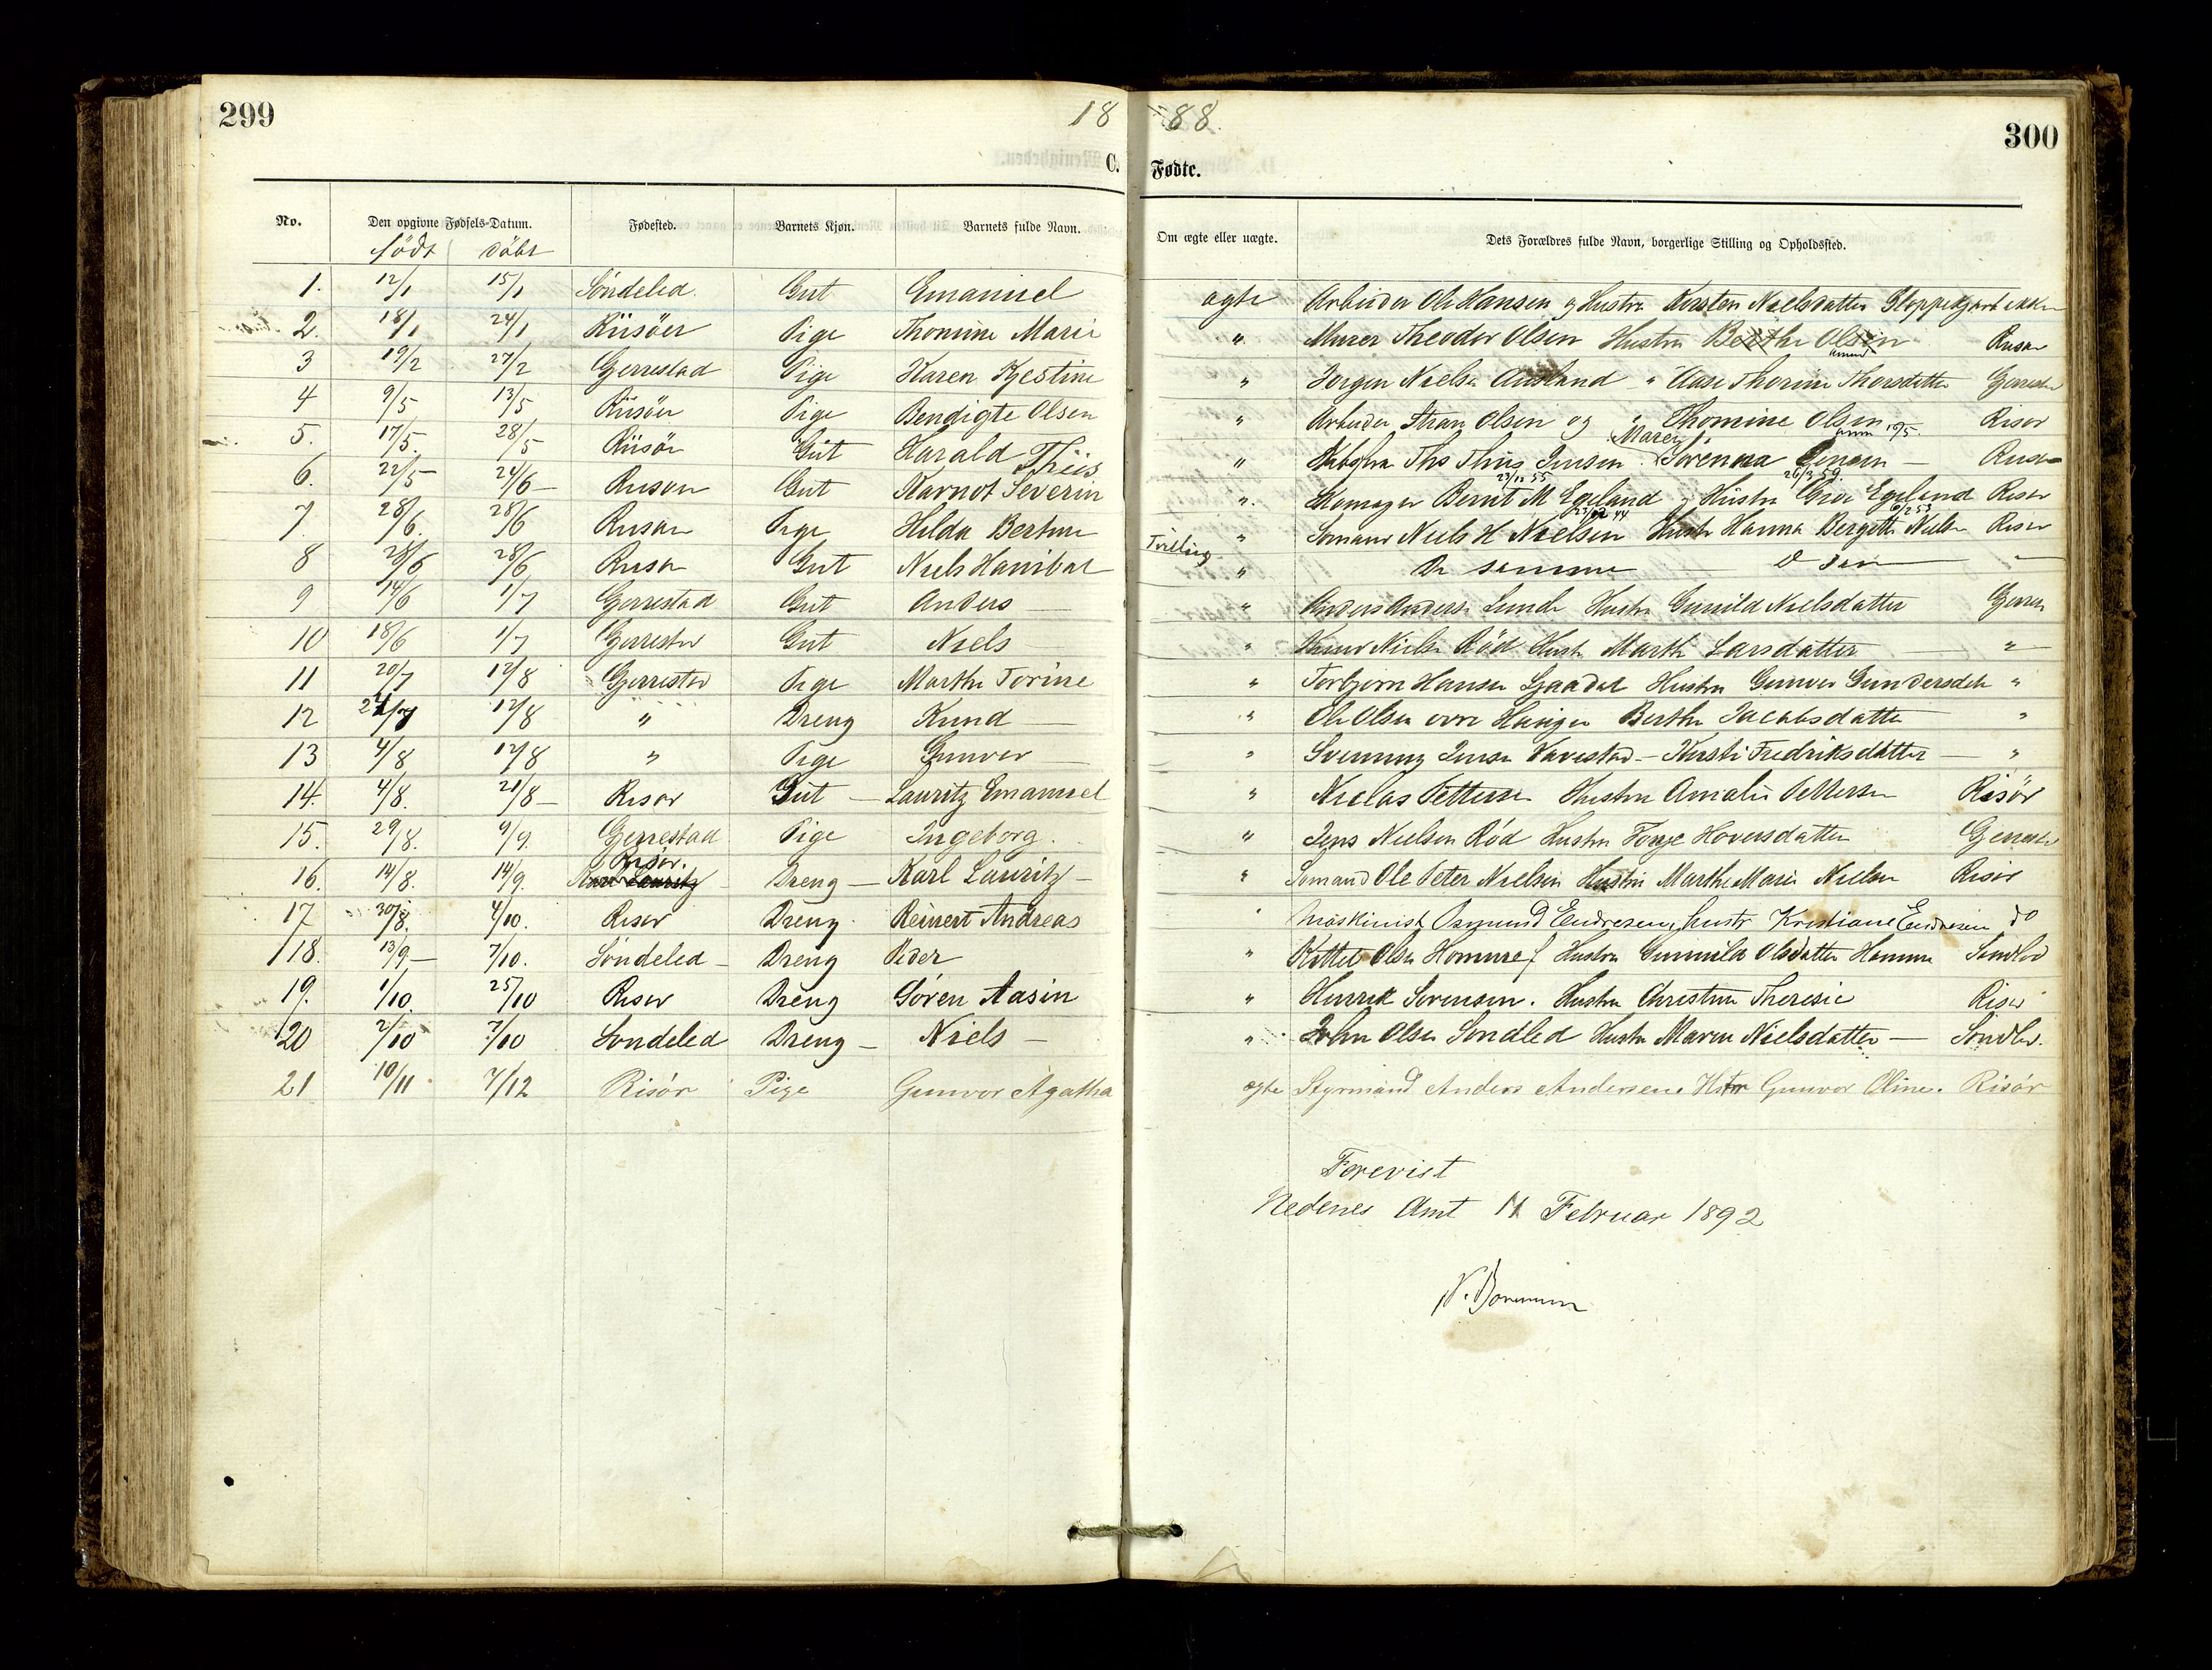 299
18
88.
300
C.
Fødte.
No. Den opgivne Fødsels-Datum. Fødested. Barnets Kjøn. Barnets fulde Navn. Om ægte eller uægte. Dets Forældres fulde Navn, borgerlige Stilling og Opholdssted.
født döbt
1. 12/1 15/1 Söndeled. Gut Emanuel ægte Arbeider Ole Hansen og Hustru Kirsten Nielsdatter
2. 18/1 24/1 Riisöer Pige Thomine Marie " Murer Theodor Olsen Hustru Berthe Olsen Risør
3 19/2 27/2 Gjerrestad Pige Karen Kjestine " Jørgen Nielsen Ausland " Aase Thorine Thorsdatter Gjerrestad
4 9/5 13/5 Riisöer Pige Bendigte Olsen " Arbeider Stran Olsen og " Thomine Olsen Risør
5. 17/5. 28/5 Riisör Gut Harald Thiis " Ths Thiis Jensen Maren Sörenna Jensen — Risør
6. 22/5 24/6 — Risør Gut Karnot Severin ". Skomager Bernt M Egeland og Hustru Groe Egeland Risør
7 28/6. 28/6 Risør Pige Hilda Bertine " Sömand Niels H Nielsen Hustr Hanna Bergitte Nielsen Risør
8 28/6 28/6 Risør Gut Niels Hanibal Tvilling " De samme — "
9 14/6 1/7 Gjerrestad Gut Anders — " Anders Anders. Lunde Hustru Gunild Nielsdatter Gjerres
10 18/6 1/7 Gjerrestad Gut Niels " Nielse Röd Hustr Marthe Larsdatter "
11 20/7 12/8 Gjerrestad Pige Marthe Torine " Torbjørn Hansen Hustru Gunver Gundersdatter "
12 12/8 " Dreng Knud — " Ole Olsen øvre Berthe Jacobsdatter "
13 4/8 12/8 " Pige Gunver — " Svenung Jensen Vavestad — Kirsti Fredriksdatter — "
14. 4/8. 21/8 — Risør Gut — Lauritz Emanuel " Niclas Pettersen Hustru Amalie Pettersen Risör
15. 29/8. 9/9. Gjerrestad Pige Ingeborg. " Jens Nielsen Röd Hustru Torge Hoversdatter Gjerrestad
Risør.
16. 14/8. 14/9. Karl Lauritz Dreng — Karl Lauritz — " Sömand Ole Peter Nielsen Hustru Marthe Marie Nielsen Risør
17 30/8. 4/10. Risør Dreng Reinert Andreas " Maskinist Osmund Endresen, Hustr Kristiane Endresen do
18. 13/9 — 7/10. Söndeled — Dreng Peder " Kittel Olsen Homme Hustru Gunnild Olsdatter Homme Sündled
19. 1/10. 25/10 Risør Dreng Sören Aasin " Henrik Sörensen. Hustru Christine Theresie Risør
20 2/10 7/10 Söndeled Dreng — Niels — " John Olsen Söndled Hustr Maren Nielsdatter — Söndled.
21 10/11. 7/12 Risör Pige Gunvor Agatha ægte Styrmand Anders Andersen. Hstr Gunvor Oline. Risör
Forevist
Nedenes Amt 11 Februar 1892